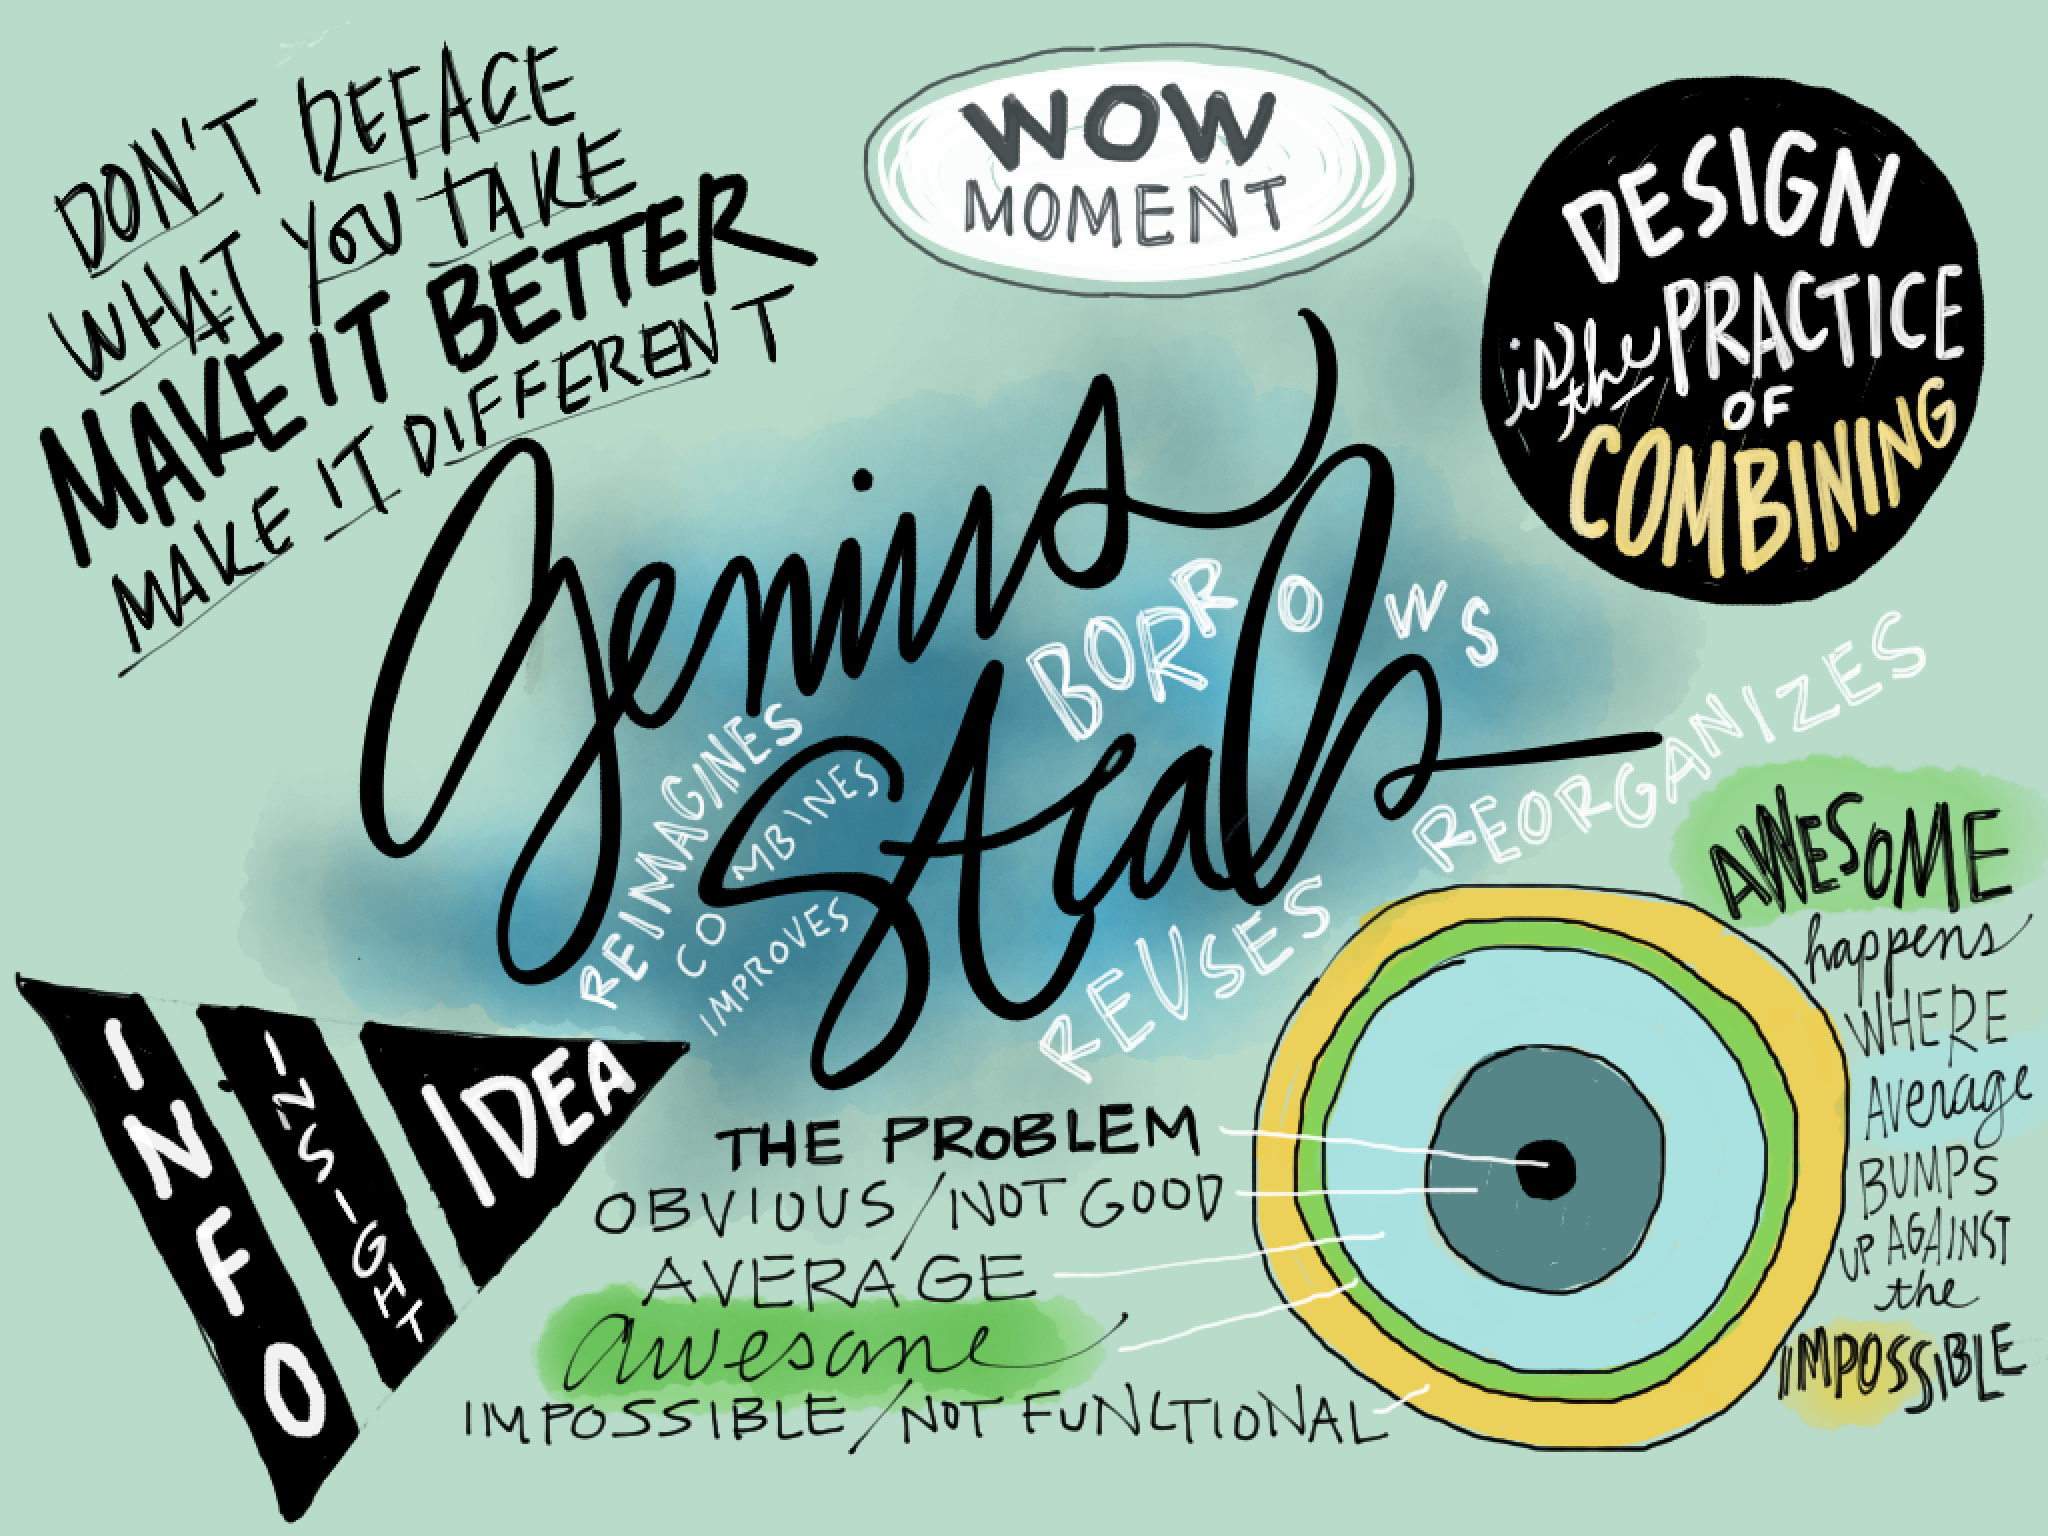 DON'T DEFACE
WHAT YOU TAKE
MAKE IT BETTER
MAKE IT DIFFERENT
WOW
MOMENT
DESIGN
is the PRACTICE
OF
COMBINING
genius
steals
BORROWS
REORGANIZES
REIMAGINES
COMBINES
IMPROVES
REUSES
INFO
INSIGHT
IDEA
THE PROBLEM
OBVIOUS/NOT GOOD
AVERAGE
awesome
IMPOSSIBLE/NOT FUNCTIONAL
AWESOME
happens
WHERE
Average
BUMPS
UP AGAINST
the
IMPOSSIBLE